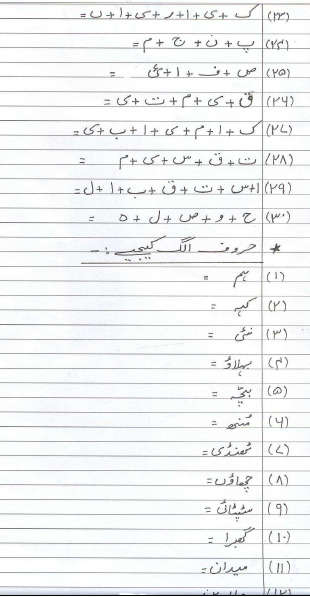 (۲۳) ک + ی + ا + ر + ی + ا + ں =
(۲۴) پ + ن + ج + م =
(۲۵) ص + ف + ا + ئی =
(۲۶) ق + ی + م + ت + ی =
(۲۷) ک + ا + م + ی + ا + ب + ی =
(۲۸) ت + ق + س + ی + م =
(۲۹) ا + س + ت + ق + ب + ا + ل =
(۳۰) ح + و + ص + ل + ہ =
* حروف الگ کیجیے :-
(۱) ہم =
(۲) کہہ =
(۳) نئی =
(۴) بہلاؤ =
(۵) بچّہ =
(۶) مُنہ =
(۷) ٹھنڈی =
(۸) چھاؤں =
(۹) سٹپٹائی =
(۱۰) گھبرا =
(۱۱) میدان =
(۱۲)